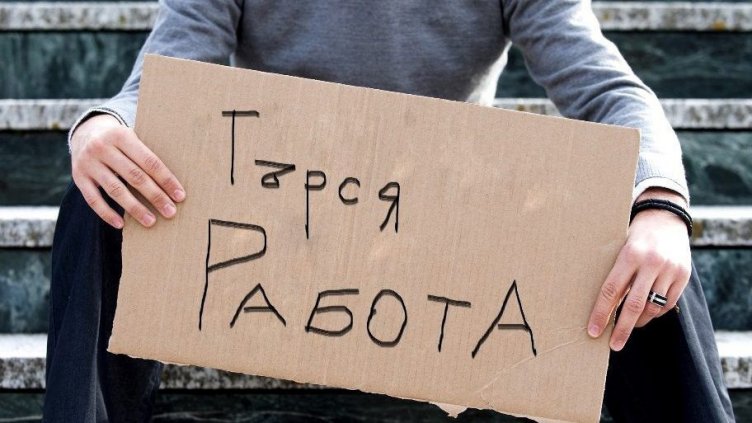 Търся
РАБОТА